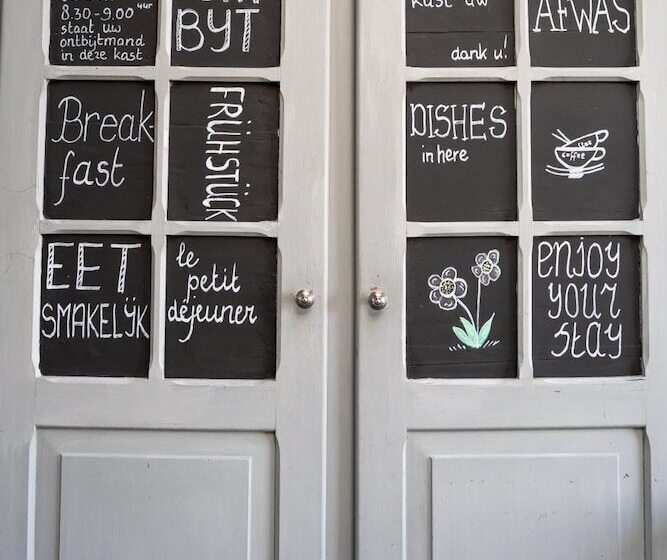 8.30-9.00 uur
staat uw
ontbijtmand
in deze kast
BYT
Break-
fast
FRÜHSTÜCK
EET
SMAKELĲK
le
petit
déjeuner
kast uw
dank u!
AFWAS
DISHES
in here
coffee
enjoy
your
stay